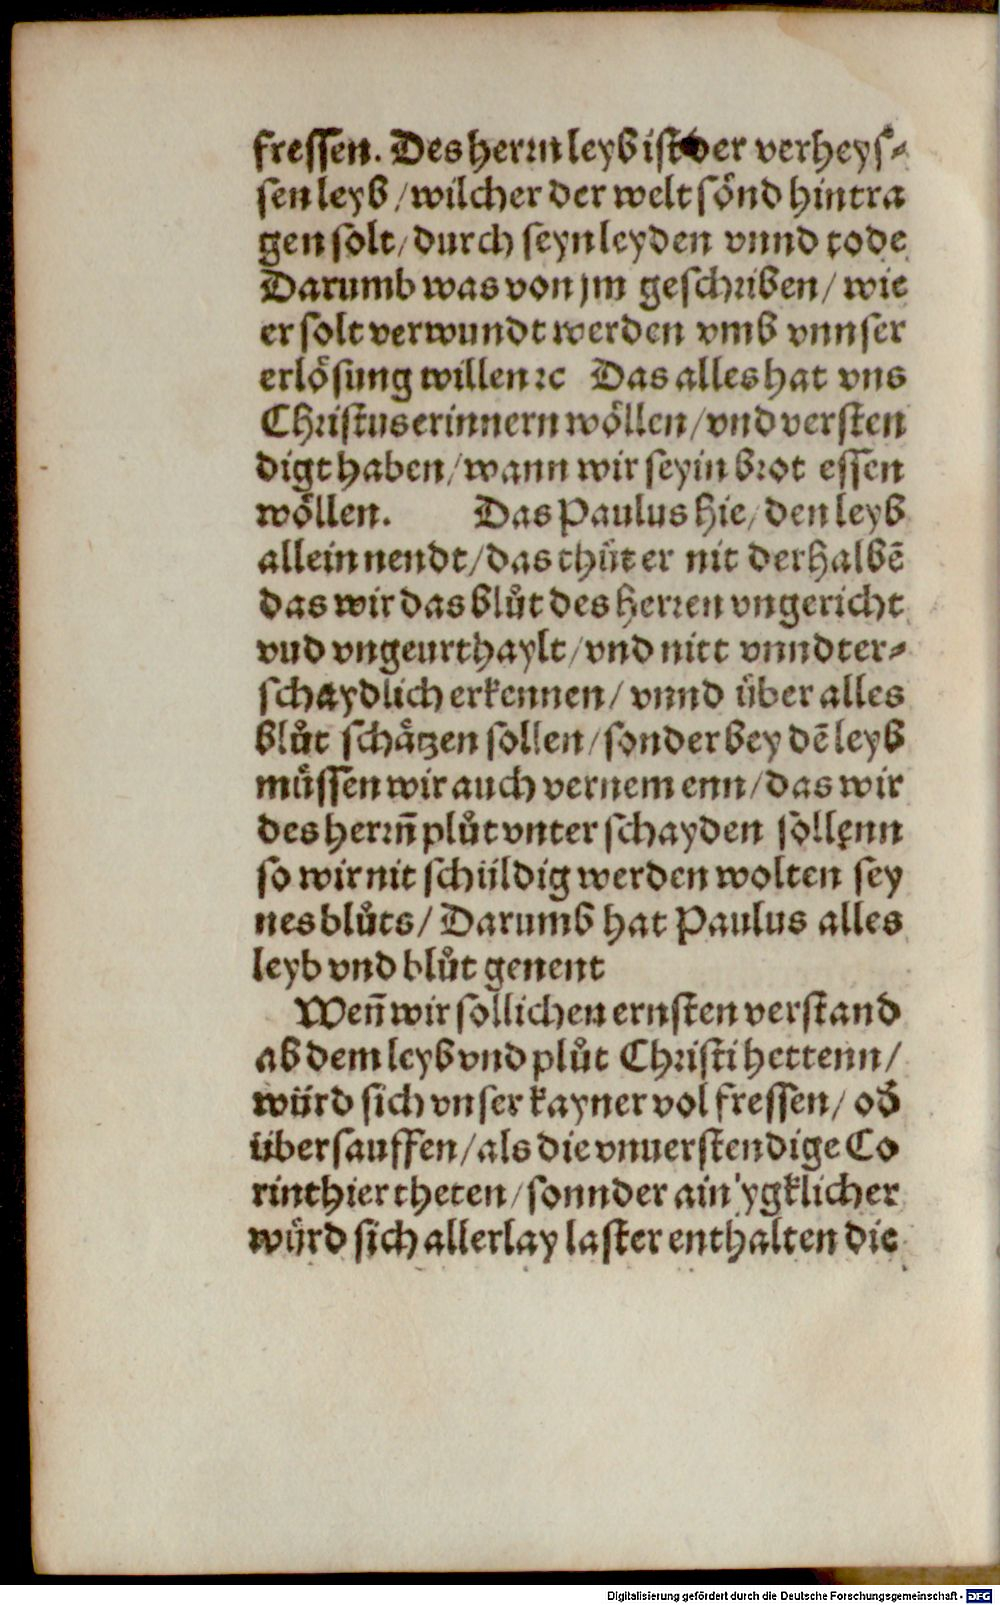 fressen. Des herrn leyb ist der verheys⸗
sen leyb / wilcher der welt sönd hintra
gen solt / durch seyn leyden vnnd tode
Darumb was von jm geschriben / wie
er solt verwundt werden vmb vnnser
erlösung willen ⁊c Das alles hat vns
Christus erinnern wöllen / vnd versten
digt haben / wann wir seyin brot essen
wöllen. Das Paulus hie / den leyb
allein nendt / das thůt er nit derhalbē
das wir das blůt des herren vngericht
vnd vngeurthaylt / vnd nitt vnndter⸗
schaydlich erkennen / vnnd über alles
blůt schätzen sollen / sonder bey dē leyb
müssen wir auch vernem enn / das wir
des herrn̄ plůt vnter schayden sollenn
so wir nit schüldig werden wolten sey
nes blůts / Darumb hat Paulus alles
leyb vnd blůt genent
Wen̄ wir sollichen ernsten verstand
ab dem leyb vnd plůt Christi hettenn /
würd sich vnser kayner vol fressen / oď
übersauffen / als die vnuerstendige Co
rinthier theten / sonnder ain ygklicher
würd sich allerlay laster enthalten die
Digitalisierung gefördert durch die Deutsche Forschungsgemeinschaft - DFG